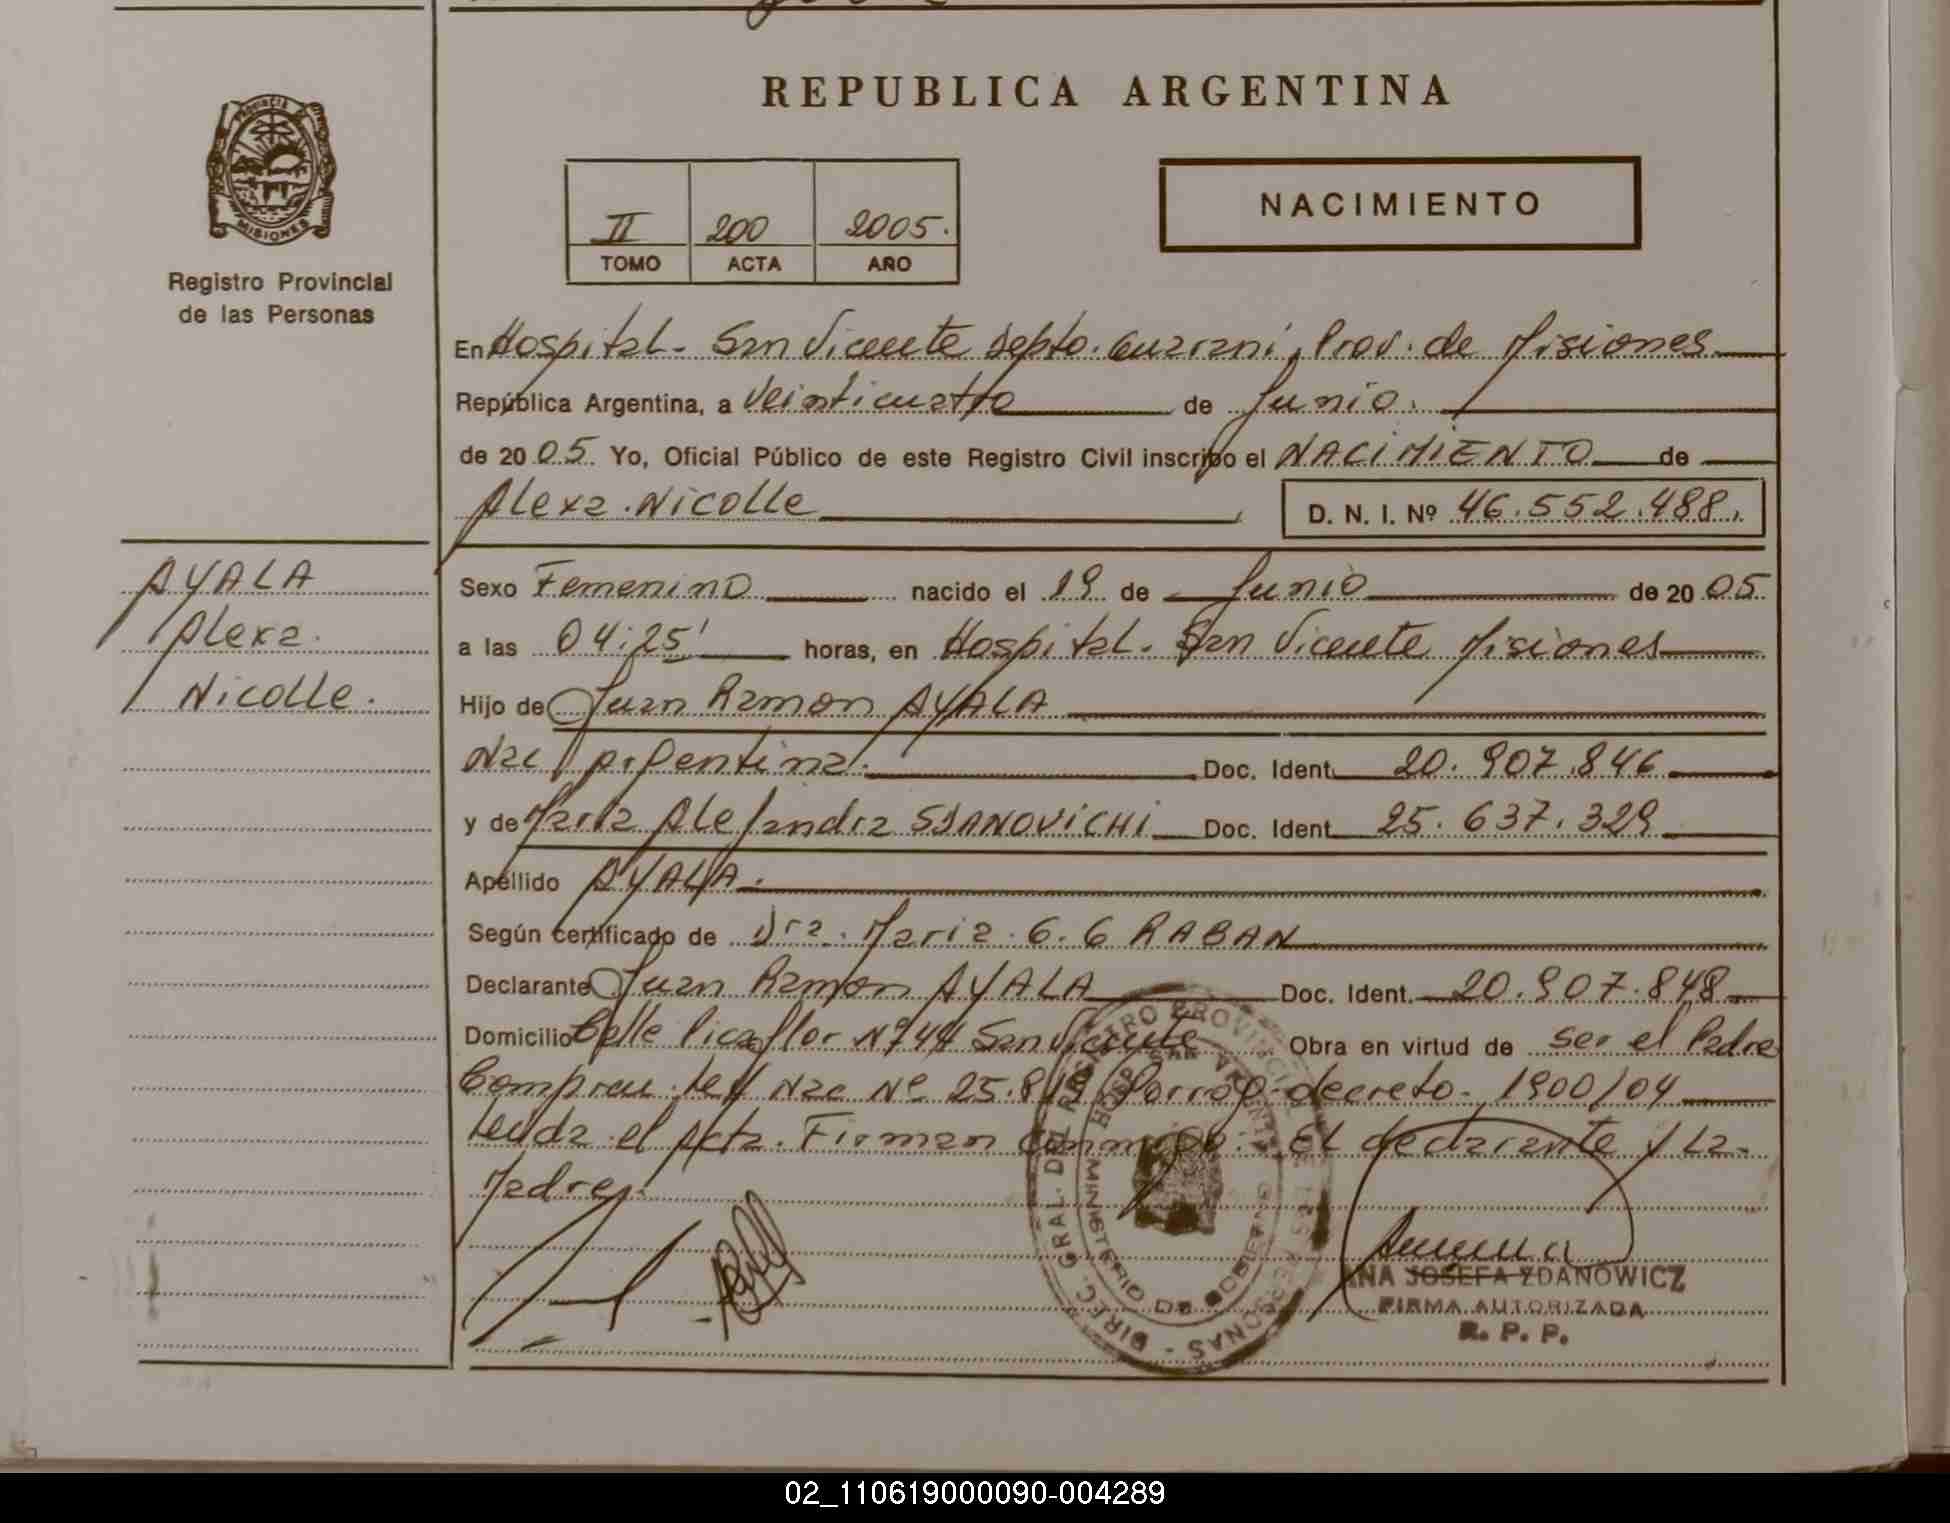 REPUBLICA ARGENTINA
PROVINCIA DE
MISIONES
Registro Provincial
de las Personas
II 200 2005.
TOMO ACTA AÑO
NACIMIENTO
En Hospital - San Vicente Depto. Guarani, Prov. de Misiones
República Argentina, a Veinticuatro de Junio.
de 2005. Yo, Oficial Público de este Registro Civil inscripo el NACIMIENTO de
Alexa Nicolle
D. N. I. Nº 46.552.488.
AYALA
Alexa.
Nicolle.
Sexo Femenino nacido el 19 de Junio de 2005
a las 04:25' horas, en Hospital. San Vicente Misiones
Hijo de Juan Ramon AYALA
Nac Argentina. Doc. Ident. 20.907.846
y de Maria Alejandra SSANOVICHI Doc. Ident. 25.637.329
Apellido AYALA.
Según certificado de Dra. Maria G. G RABAN
Declarante Juan Ramon AYALA Doc. Ident. 20.907.848
Domicilio Calle Picaflor Nº 44 San Vicente Obra en virtud de ser el Padre
Nac Nº decreto - 1900/04
Leida el Acta. Firman conmigo: El declarante y La
Madre.
DIREC. GRAL. DEL REGISTRO PROVINCIAL DE LAS PERSONAS
MINISTERIO DE GOBIERNO
ANA JOSEFA ZDANOWICZ
FIRMA AUTORIZADA
R. P. P.
02_110619000090-004289